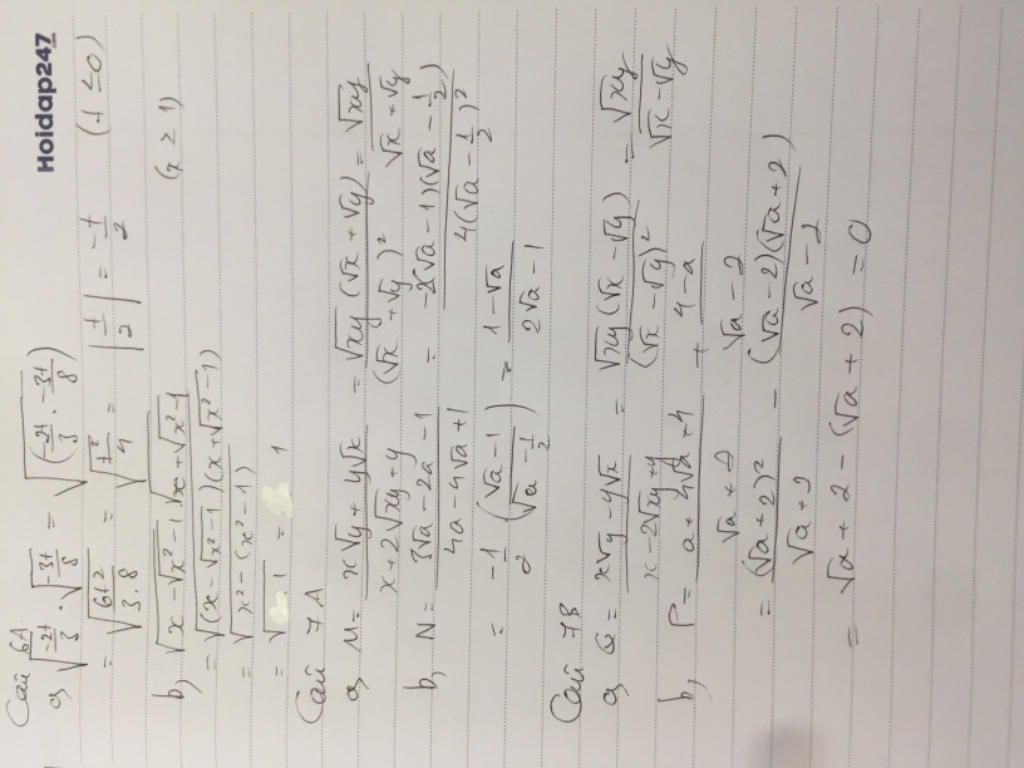 Hoidap247
Câu 6A.
a, √(-2t/3) . √(-3t/8) = √((-2t/3) . (-3t/8))
= √(6t²/(3.8)) = √(t²/4) = |t/2| = -t/2 (t ≤ 0)
b, √(x - √(x² - 1)) . √(x + √(x² - 1)) (x ≥ 1)
= √((x - √(x² - 1))(x + √(x² - 1)))
= √(x² - (x² - 1))
= √1 = 1
Câu 7A
a, M = (x√y + y√x)/(x + 2√xy + y) = √xy(√x + √y)/(√x + √y)² = √xy/(√x + √y)
b, N = (3√a - 2a - 1)/(4a - 4√a + 1) = -2(√a - 1)(√a - 1/2)/(4(√a - 1/2)²)
= -1/2 ((√a - 1)/(√a - 1/2)) = (1 - √a)/(2√a - 1)
Câu 7B
a, Q = (x√y - y√x)/(x - 2√xy + y) = √xy(√x - √y)/(√x - √y)² = √xy/(√x - √y)
b, P = (a + 4√a + 4)/(√a + 2) + (4 - a)/(√a - 2)
= (√a + 2)²/(√a + 2) - (√a - 2)(√a + 2)/(√a - 2)
= √a + 2 - (√a + 2) = 0